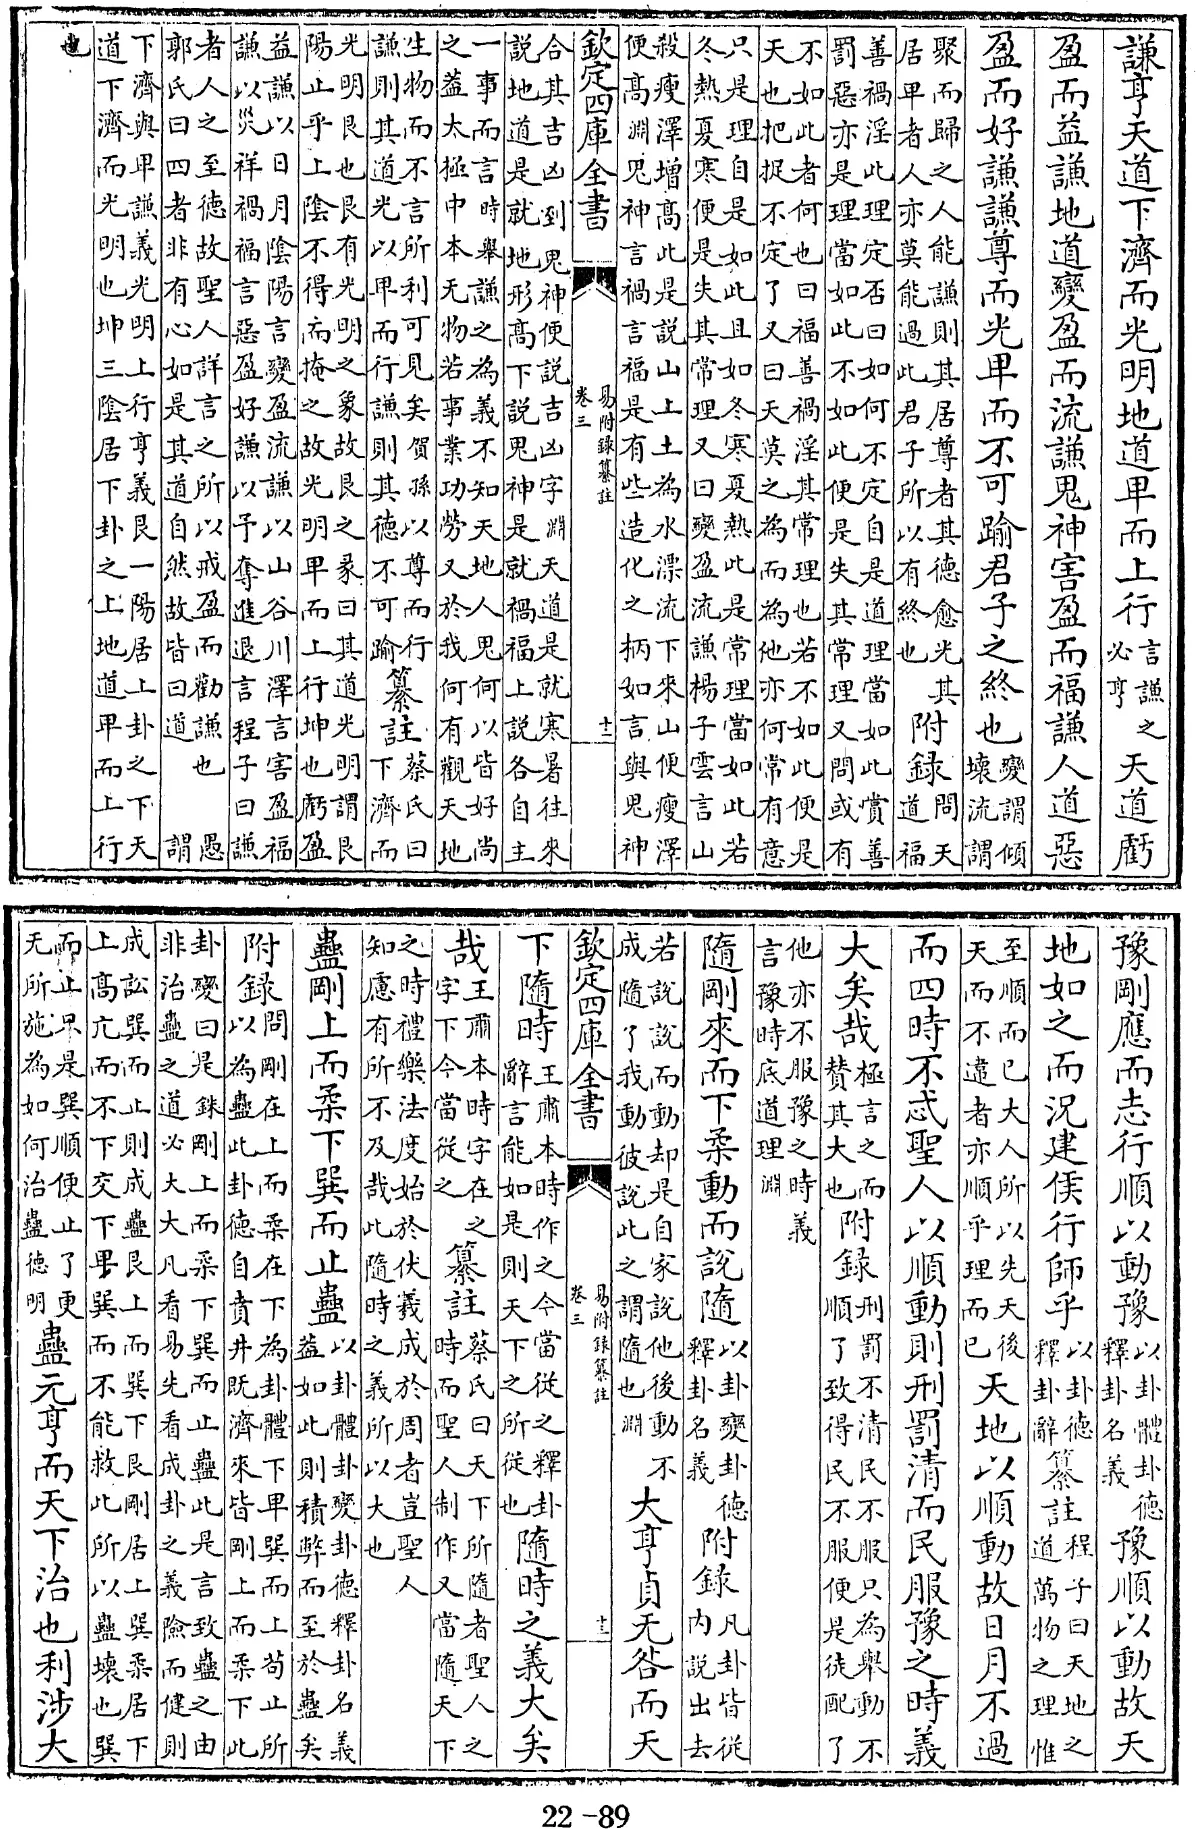 謙亨天道下濟而光明地道卑而上行言謙之必亨天道虧
盈而益謙地道變盈而流謙鬼神害盈而福謙人道惡
盈而好謙謙尊而光卑而不可踰君子之終也變謂傾壞流謂
聚而歸之人能謙則其居尊者其德愈光其居卑者人亦莫能過此君子所以有終也附録問天道福
善禍淫此理定否曰如何不定自是道理當如此賞善
罰惡亦是理當如此不如此便是失其常理又問或有
不如此者何也曰福善禍淫其常理也若不如此便是
天也把捉不定了又曰天莫之為而為他亦何常有意
只是理自是如此且如冬寒夏熱此是常理當如此若
冬熱夏寒便是失其常理又曰變盈流謙楊子雲言山
殺瘦澤增高此是説山上土為水漂流下來山便瘦澤
便高淵鬼神言禍言福是有些造化之柄如言與鬼神
欽定四庫全書
易附録纂註
卷三
十二
合其吉凶到鬼神便説吉凶字淵天道是就寒暑往來
説地道是就地形高下説鬼神是就禍福上説各自主
一事而言時舉謙之為義不知天地人鬼何以皆好尚
之蓋太極中本无物若事業功勞又於我何有觀天地
生物而不言所利可見矣賀孫以尊而行謙則其道光以卑而行謙則其德不可踰纂註蔡氏曰下濟而
光明艮也艮有光明之象故艮之彖曰其道光明謂艮
陽止乎上陰不得而掩之故光明卑而上行坤也虧盈
益謙以日月陰陽言變盈流謙以山谷川澤言害盈福
謙以災祥禍福言惡盈好謙以予奪進退言程子曰謙
者人之至德故聖人詳言之所以戒盈而勸謙也
郭氏曰四者非有心如是其道自然故皆曰道愚謂
下濟與卑謙義光明上行亨義艮一陽居上卦之下天
道下濟而光明也坤三陰居下卦之上地道卑而上行
也
豫剛應而志行順以動豫以卦體卦德釋卦名義豫順以動故天
地如之而況建侯行師乎以卦德釋卦辭纂註程子曰天地之道萬物之理惟
至順而已大人所以先天後天而不違者亦順乎理而已天地以順動故日月不過
而四時不忒聖人以順動則刑罰清而民服豫之時義
大矣哉極言之而贊其大也附録刑罰不清民不服只為舉動不順了致得民不服便是徒配了
他亦不服豫之時義
言豫時底道理淵
隨剛來而下柔動而説隨以卦變卦德釋卦名義附録凡卦皆從内説出去
若説説而動却是自家説他後動不成隨了我動彼説此之謂隨也淵大亨貞无咎而天
欽定四庫全書
易附録纂註
卷三
十三
下隨時王肅本時作之今當從之釋卦辭言能如是則天下之所從也隨時之義大矣
哉王肅本時字在之字下今當從之纂註蔡氏曰天下所隨者聖人之時而聖人制作又當隨天下
之時禮樂法度始於伏羲成於周者豈聖人
知慮有所不及哉此隨時之義所以大也
蠱剛上而柔下巽而止蠱以卦體卦變卦德釋卦名義蓋如此則積弊而至於蠱矣
附録問剛在上而柔在下為卦體下卑巽而上苟止所以為蠱此卦德自賁井既濟來皆剛上而柔下此
卦變曰是銖剛上而柔下巽而止蠱此是言致蠱之由
非治蠱之道必大凡看易先看成卦之義險而健則
成訟巽而止則成蠱艮上而巽下艮剛居上巽柔居下
上高亢而不下交下卑巽而不能救此所以蠱壞也巽
而止只是巽順便止了更无所施為如何治蠱德明蠱元亨而天下治也利涉大
22-89